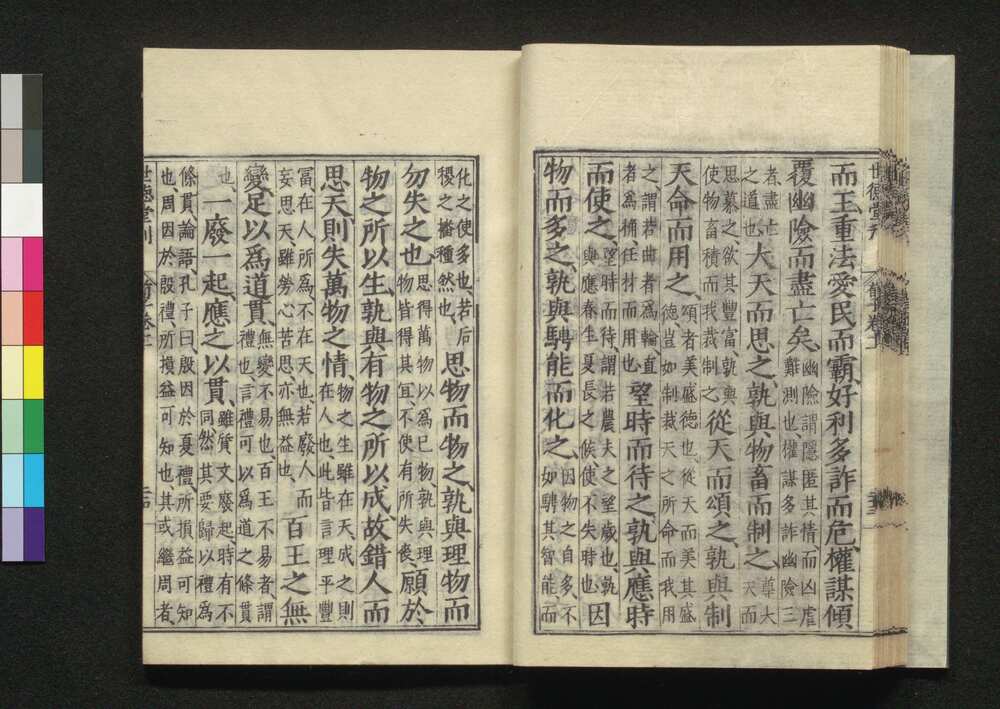 世德堂刊
荀子卷十一
而王重法愛民而霸好利多詐而危權謀傾
覆幽險而盡亡矣幽險謂隱匿其情而凶虐難測也權謀多詐幽險三
者盡亡之道也大天而思之孰與物畜而制之尊大天而
思慕之欲其豐富孰與使物畜積而我裁制之從天而頌之孰與制
天命而用之頌者美盛德也從天而美其盛德豈如制裁天之所命而我用
之謂若曲者爲輪直者爲桷任材而用也望時而待之孰與應時
而使之望時而待謂若農夫之望歲也孰與應春生夏長之候使不失時也因
物而多之孰與騁能而化之因物之自多不如騁其智能而
化之使多也若后稷之播種然也思物而物之孰與理物而
勿失之也思得萬物以爲己物孰與理物皆得其宜不使有所失喪願於
物之所以生孰與有物之所以成故錯人而
思天則失萬物之情物之生雖在天成之則在人也此皆言理平豐
富在人所爲不在天也若廢人而妄思天雖勞心苦思亦無益也百王之無
變足以爲道貫無變不易也百王不易者謂禮也言禮可以爲道之條貫
也一廢一起應之以貫雖質文廢起時有不同然其要歸以禮爲
條貫論語孔子曰殷因於夏禮所損益可知也周因於殷禮所損益可知也其或繼周者
世德堂刊